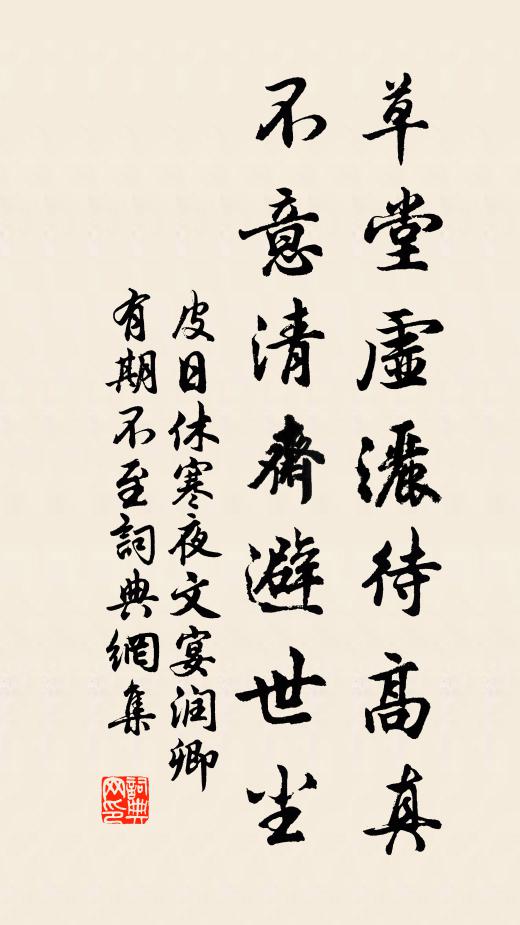 草堂虛灑待高真
不意清齋避世尘
皮日休寒夜文宴润卿
有期不至詞典網集
詞典
网印